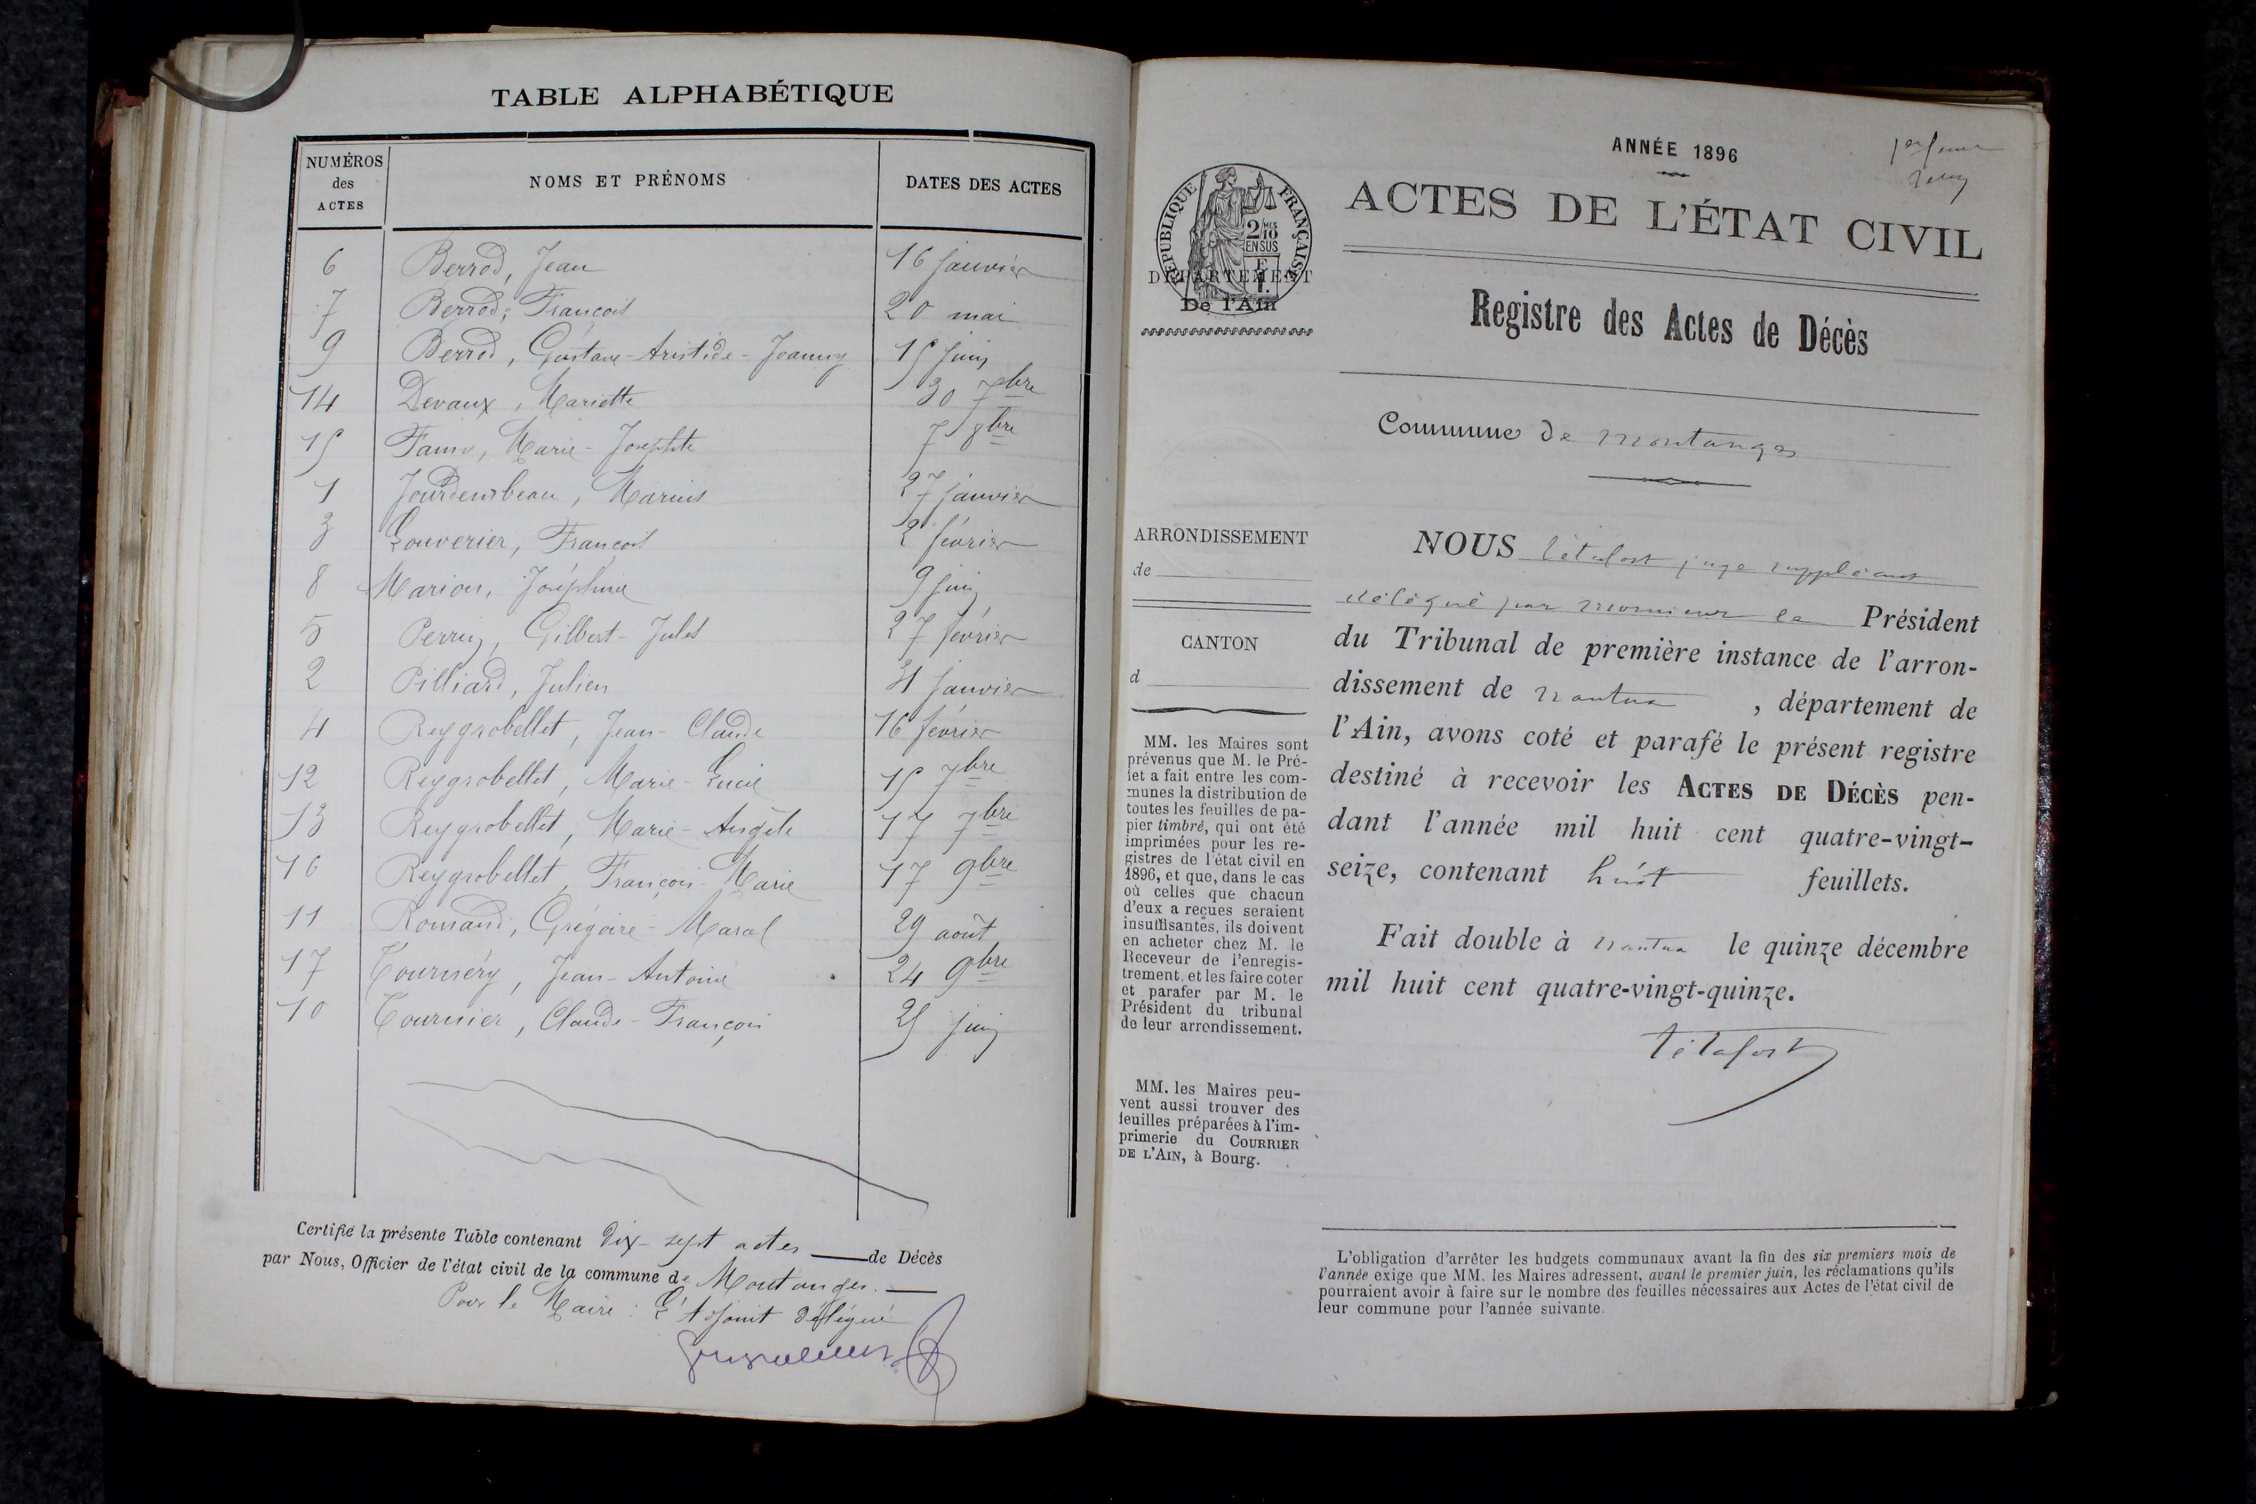 TABLE ALPHABÉTIQUE
NUMÉROS des ACTES NOMS ET PRÉNOMS DATES DES ACTES
6 Berrod, Jean 16 janvier
7 Berrod, François 20 mai
9 Berrod, Gustave-Aristide-Joanny 15 juin
14 Devaux, Mariette 30 7bre
15 Marie-Josephte 7 8bre
1 Marius 27 janvier
3 Louverier, François 2 février
8 Marion, Joséphine 9 juin
5 Perrin, Gilbert-Jules 27 février
2 Pilliard, Julien 31 janvier
4 Reygrobellet, Jean-Claude 16 février
12 Reygrobellet, Marie-Lucie 15 7bre
13 Reygrobellet, Marie-Angèle 17 7bre
16 Reygrobellet, François-Marie 17 9bre
11 Romand, Grégoire-Maral 29 août
17 Tournéry, Jean-Antoine 24 9bre
10 Tournier, Claude-François 25 juin
Certifié la présente Table contenant Dix-sept actes de Décès
par Nous, Officier de l'état civil de la commune de Montanges.
Pour le Maire : L'Adjoint délégué
ANNÉE 1896
ACTES DE L'ÉTAT CIVIL
RÉPUBLIQUE FRANÇAISE
2/10 MES
EN SUS
DÉPARTEMENT
De l'Ain
Registre des Actes de Décès
Commune de Montanges
ARRONDISSEMENT
de
CANTON
d
MM. les Maires sont
prévenus que M. le Pré-
fet a fait entre les com-
munes la distribution de
toutes les feuilles de pa-
pier timbré, qui ont été
imprimées pour les re-
gistres de l'état civil en
1896, et que, dans le cas
où celles que chacun
d'eux a reçues seraient
insuffisantes, ils doivent
en acheter chez M. le
Receveur de l'enregis-
trement, et les faire coter
et parafer par M. le
Président du tribunal
de leur arrondissement.
MM. les Maires peu-
vent aussi trouver des
feuilles préparées à l'im-
primerie du COURRIER
DE L'AIN, à Bourg.
NOUS Tétafort juge suppléant
délégué par monsieur le Président
du Tribunal de première instance de l'arron-
dissement de nantua, département de
l'Ain, avons coté et parafé le présent registre
destiné à recevoir les ACTES DE DÉCÈS pen-
dant l'année mil huit cent quatre-vingt-
seize, contenant huit feuillets.
Fait double à nantua le quinze décembre
mil huit cent quatre-vingt-quinze.
Tétafort
L'obligation d'arrêter les budgets communaux avant la fin des six premiers mois de
l'année exige que MM. les Maires adressent, avant le premier juin, les réclamations qu'ils
pourraient avoir à faire sur le nombre des feuilles nécessaires aux Actes de l'état civil de
leur commune pour l'année suivante.